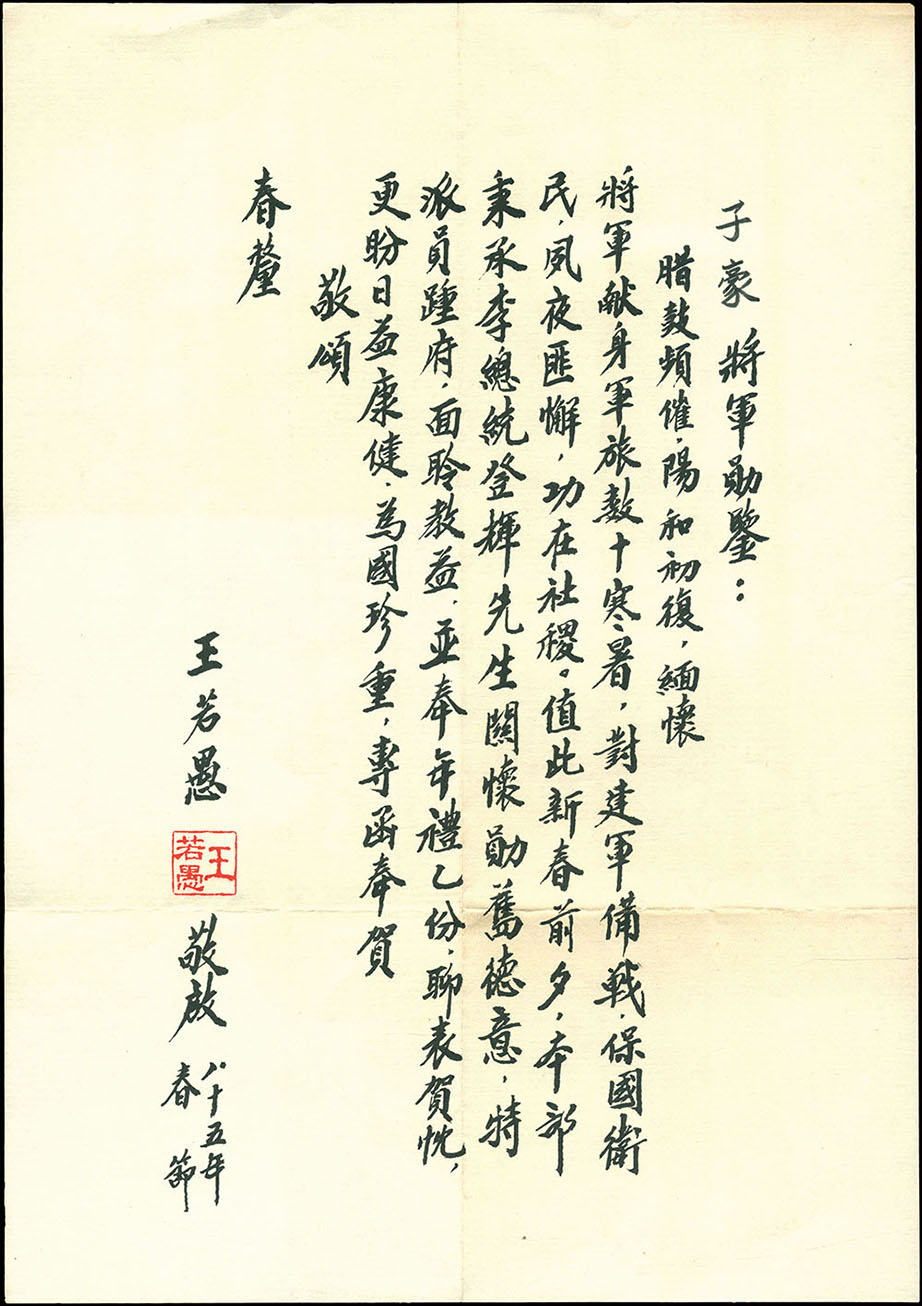 子豪將軍勛鑒：
腊鼓頻催，陽和初復，緬懷
將軍献身軍旅數十寒暑，對建軍備戰，保國衛
民，夙夜匪懈，功在社稷。值此新春前夕，本部
秉承李總統登輝先生關懷勛舊德意，特
派員踵府，面聆教益，並奉年禮乙份，聊表賀忱，
更盼日益康健，為國珍重，專函奉賀
敬頌
春釐
王若愚
王若愚
敬啟
八十五年
春節